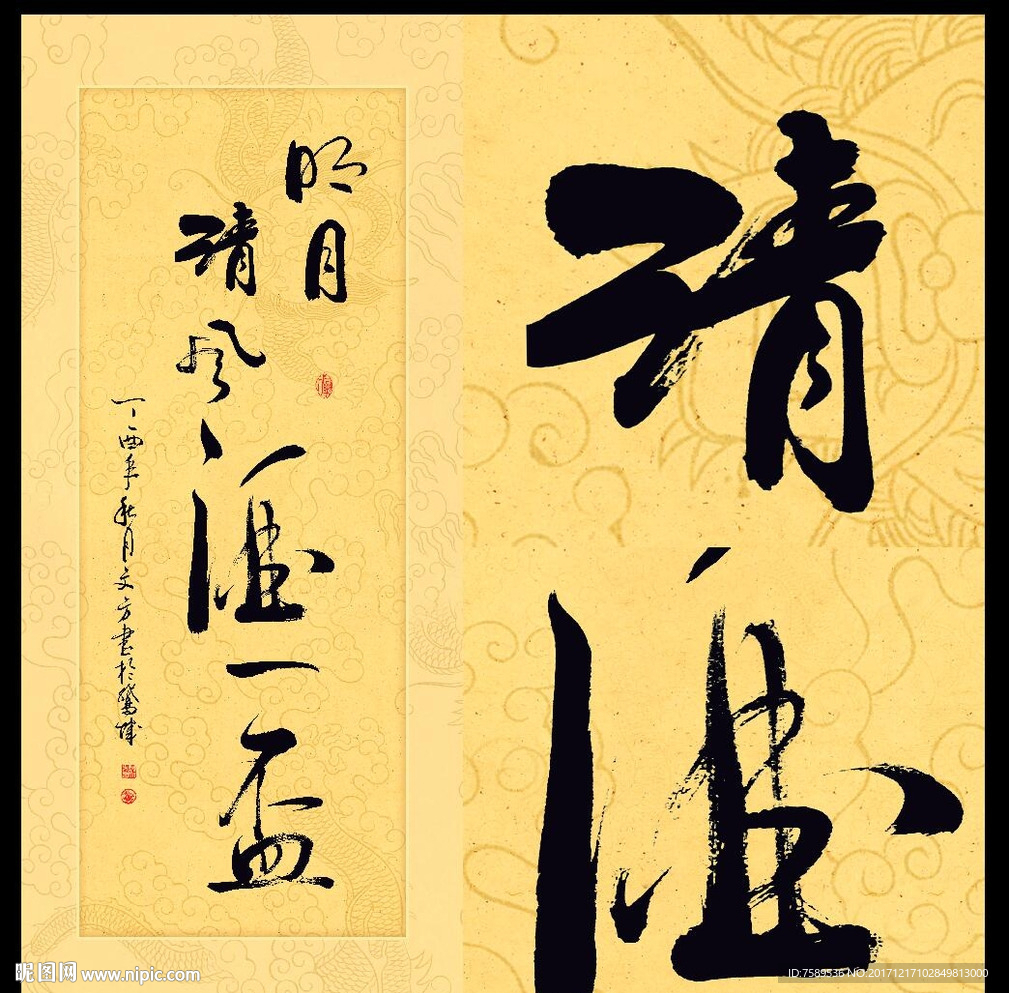 明月
清风酒一盃
丁酉年秋月文方書於鵞城
清
酒
昵图网 www.nipic.com
ID:7589536 NO:20171217102849813000